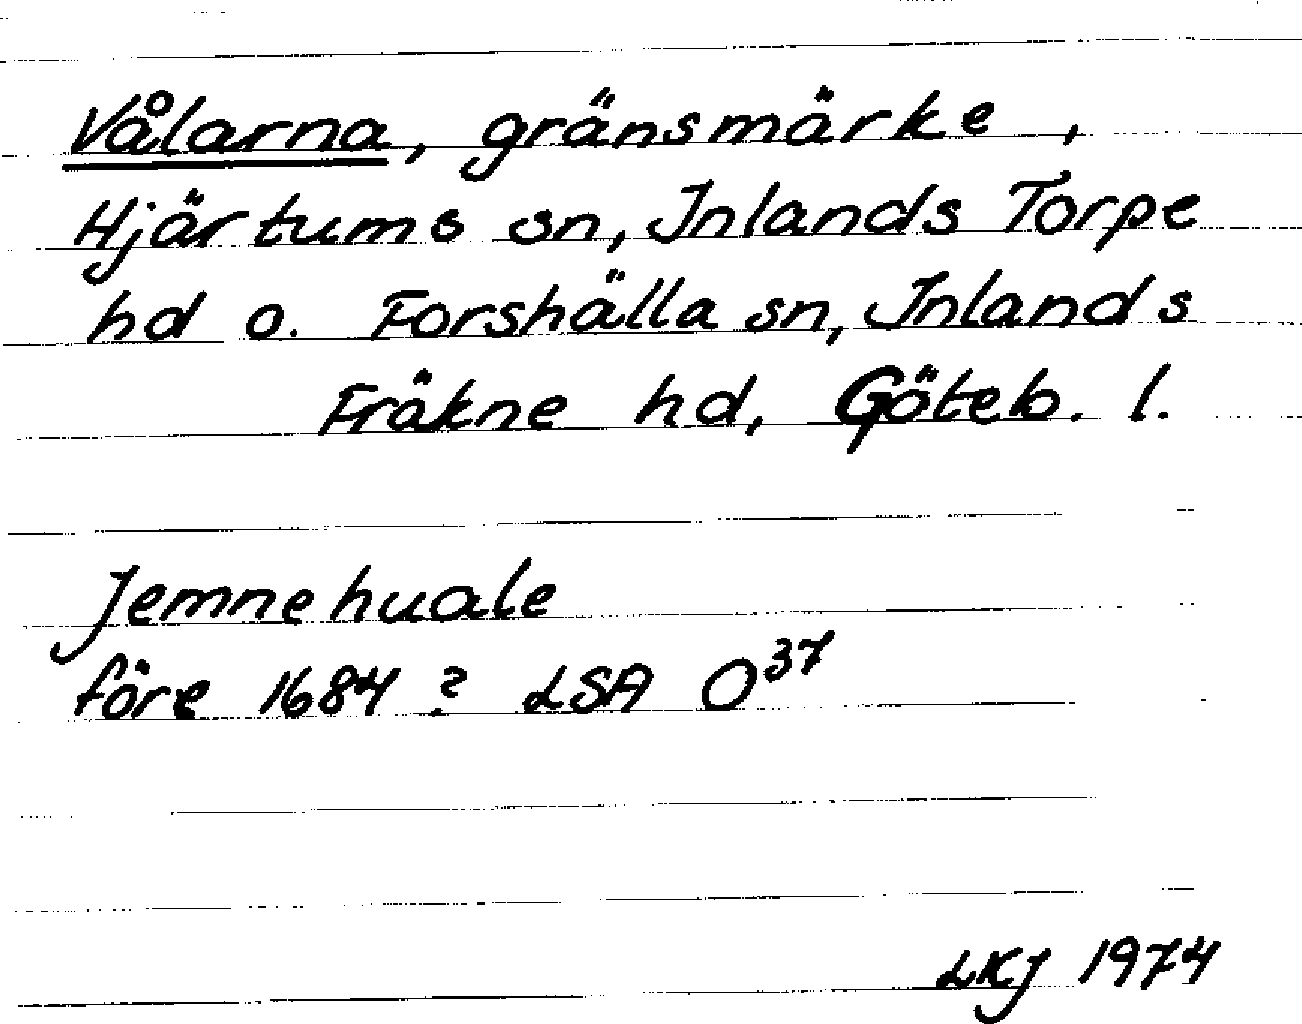 Vålarna, gränsmärke,
Hjärtums sn, Inlands Torpe
hd o. Forshälla sn, Inlands
Fräkne hd, Göteb. l.
Jemnehuale
före 1684? LSA O³⁷
LKJ 1974